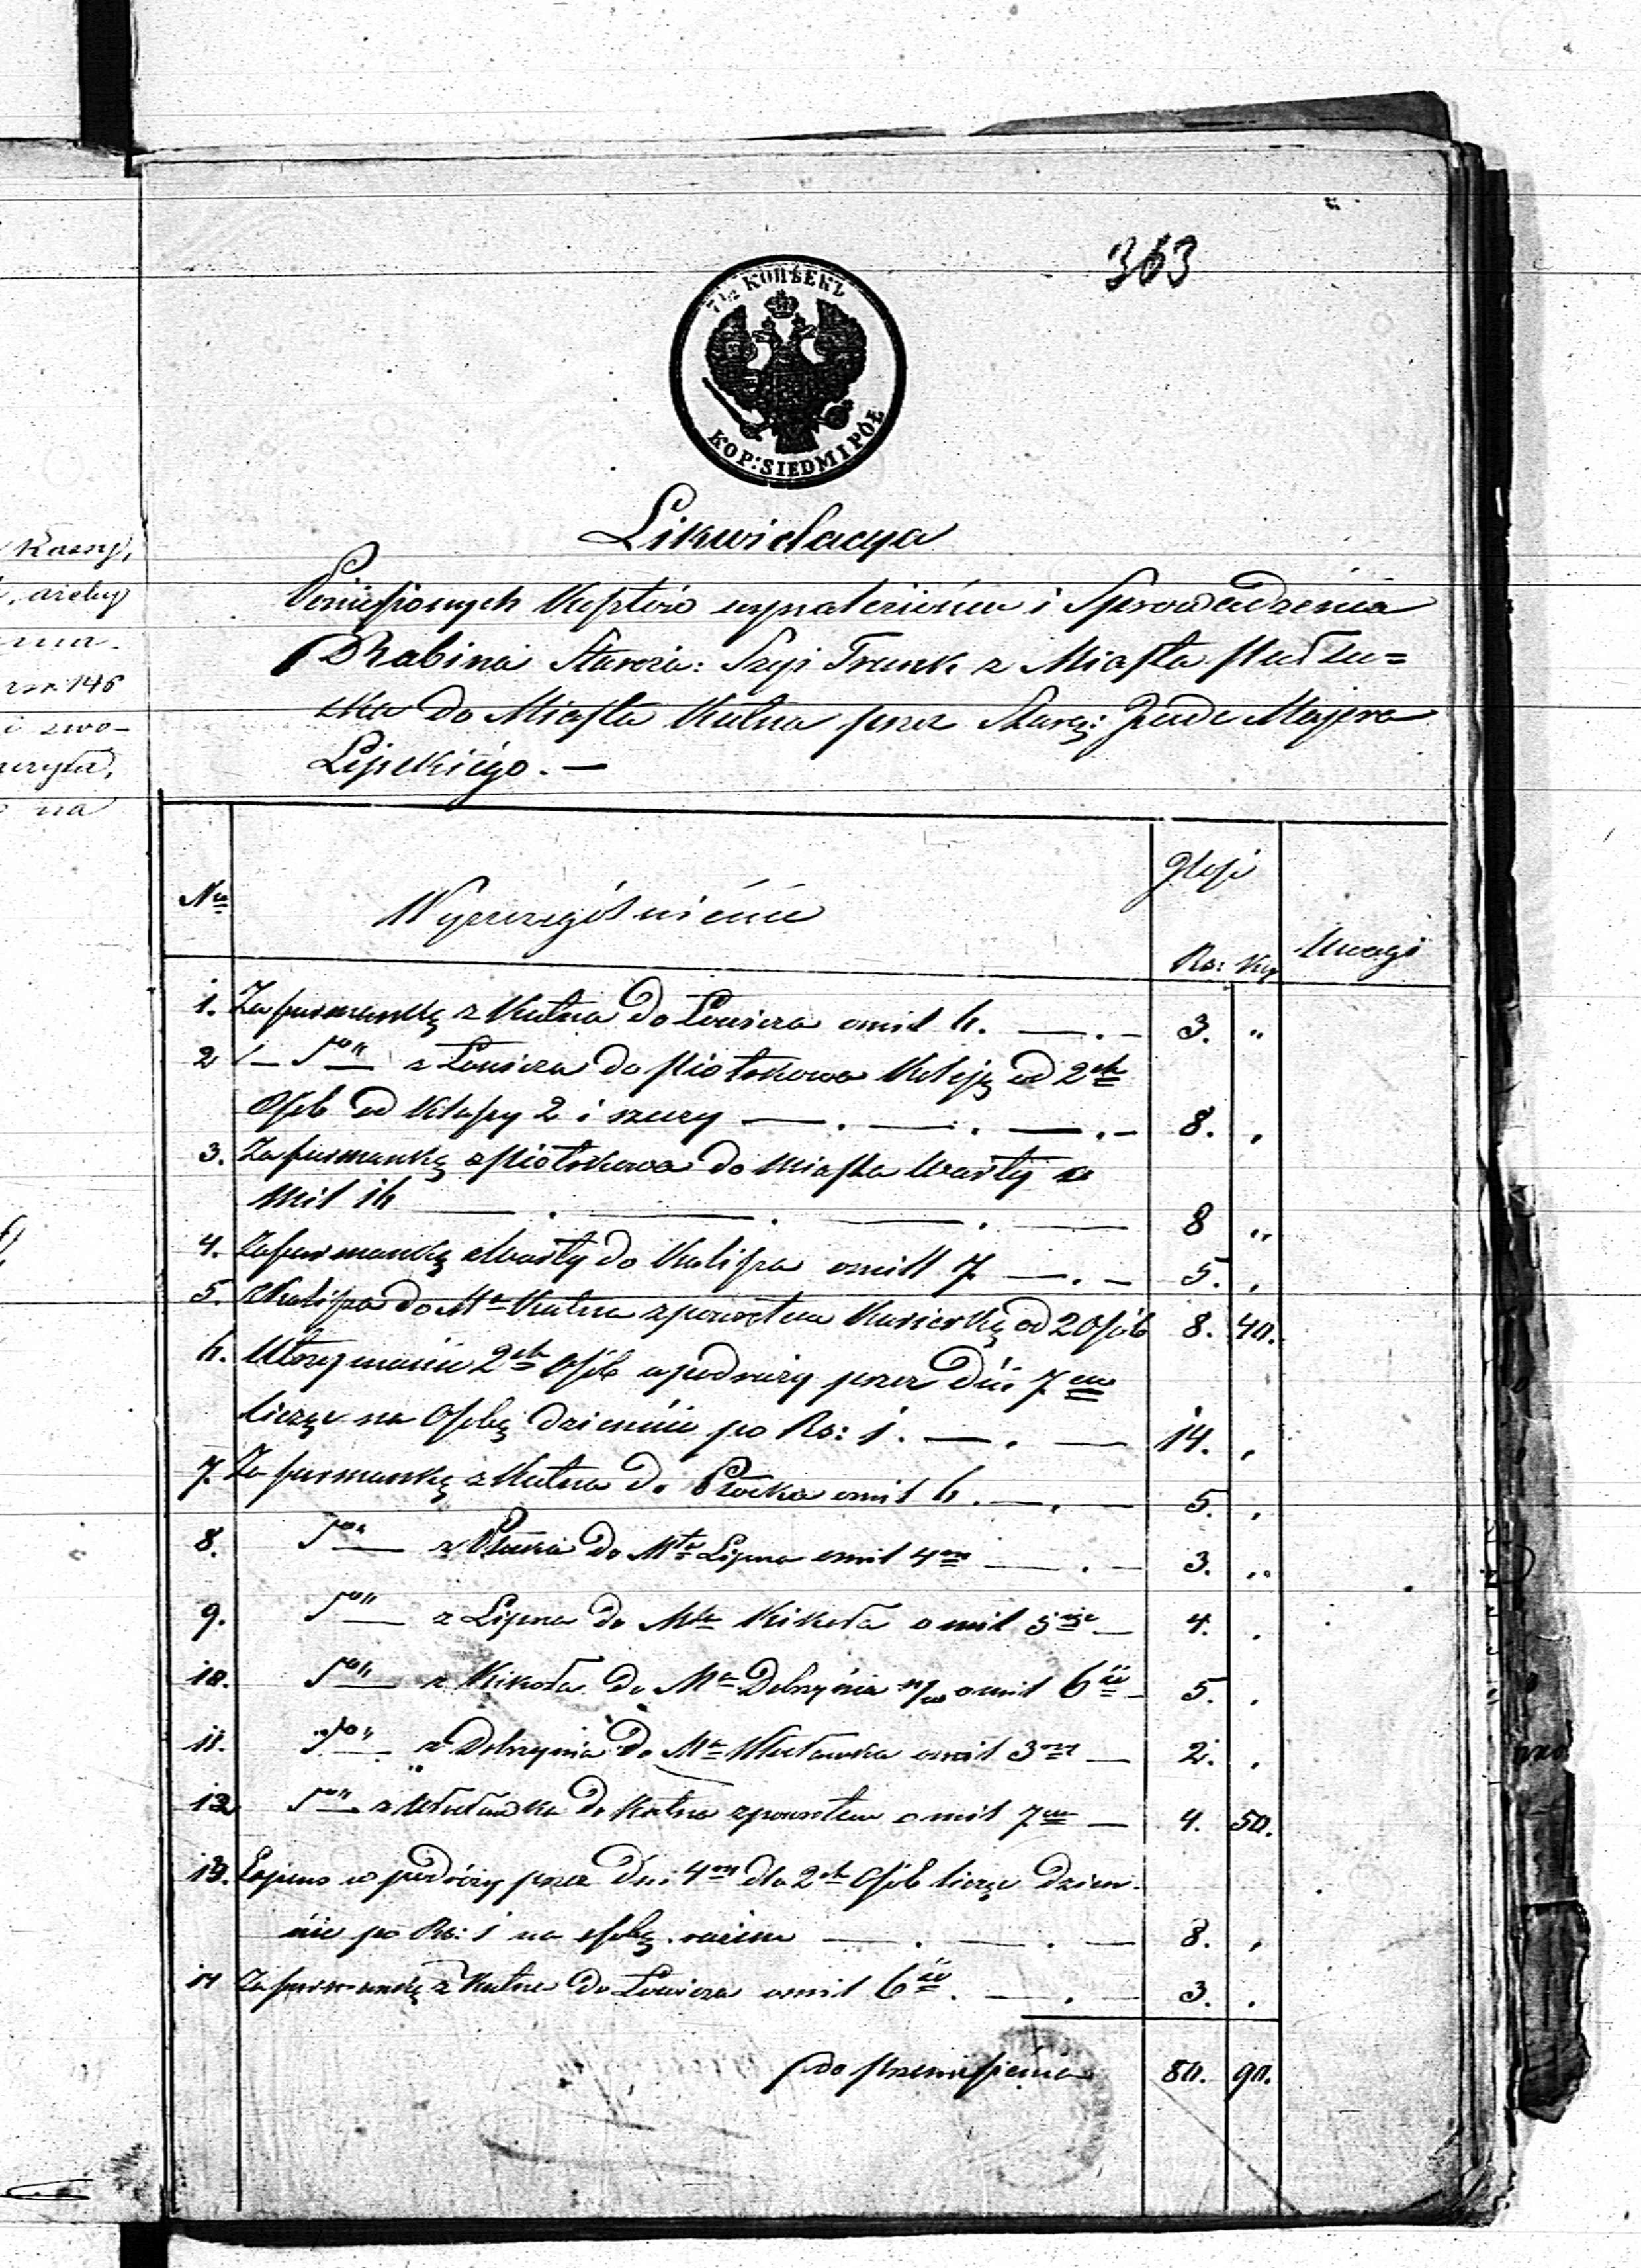 363
7 1/2 КОПѢЕКЪ
KOP: SIEDM I PÓŁ
Likwidacya
Poniesionych Kosztów wynalezienia i Sprowadzenia
Rabina Staroza: Szyi Trunk z Miasta Pułtu=
ska do Miasta Kutna przez Staroz: Jude Majera
Lipskiego. —
No
Wyszczególnienie
Uwagi
Rs: Kop
1. Za furmankę z Kutna do Łowicza o mil 6. — 3. "
2 — do z Łowicza do Piotrkowa Koleją od 2ch
Osób od Klassy 2 i — 8. ,
3. Za furmankę z Piotrkowa do Miasta Warty o
Mil 16 — 8 "
4. Za furmankę z Warty do Kalisza o mil 7 — 5. ,
5. z Kalisza do Mta Kutna z powrotem Kurierką od 2 Osób 8. 40.
6. Utrzymanie 2ch Osób w podróży przez dni 7m
licząc na Osobę dziennie po Rs: 1. — 14. ,
7. Za furmankę z Kutna do Płocka o mil 6. — 5. ,
8. do — z Płocka do Mta Lipna o mil 4ry — 3. "
9. do — z Lipna do Mta Kikoła o mil — 4. ,
10. do — z Kikoła do Mta Dobrzynia n/w o mil 6ć — 5. ,
11. do — z Dobrzynia do Mta Włocławka o mil 3ry — 2. ,
12 do — z Włocławka do Kutna z powrotem o mil 7m — 4. 50.
13. w podróży przez dni 4ry dla 2ch Osób licząc dzien-
nie po Rs: 1 na osobę razem — 8. ,
14 Za furmankę z Kutna do Łowicza o mil 6ć. — 3. ,
do przeniesienia 80. 90.